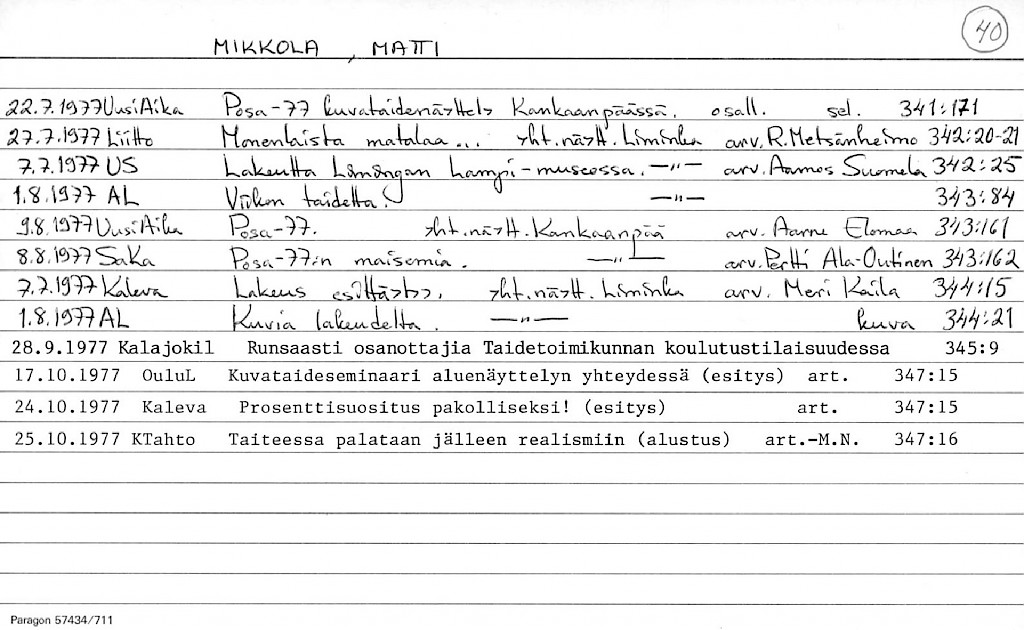 40
MIKKOLA, MATTI
22.7.1977 UusiAika Posa-77 kuvataidenäyttely Kankaanpäässä. osall. sel. 341:171
27.7.1977 Liitto Monenlaista matalaa... yht.näytt. Liminka arv. R. Metsänheimo 342:20-21
7.7.1977 US Lakeutta Limingan Lampi-museossa. —"— arv. Aamos Suomela 342:25
1.8.1977 AL Viikon taidetta. —"— 343:84
9.8.1977 UusiAika Posa-77. yht.näytt. Kankaanpää arv. Aarne Elomaa 343:161
8.8.1977 SaKa Posa-77:n maisemia. —"— arv. Pertti Ala-Outinen 343:162
7.7.1977 Kaleva Lakeus esittäytyy, yht.näytt. Liminka arv. Meri Kaila 344:15
1.8.1977 AL Kuvia lakeudelta. —"— kuva 344:21
28.9.1977 Kalajokil Runsaasti osanottajia Taidetoimikunnan koulutustilaisuudessa 345:9
17.10.1977 OuluL Kuvataideseminaari aluenäyttelyn yhteydessä (esitys) art. 347:15
24.10.1977 Kaleva Prosenttisuositus pakolliseksi! (esitys) art. 347:15
25.10.1977 KTahto Taiteessa palataan jälleen realismiin (alustus) art.-M.N. 347:16
Paragon 57434/711